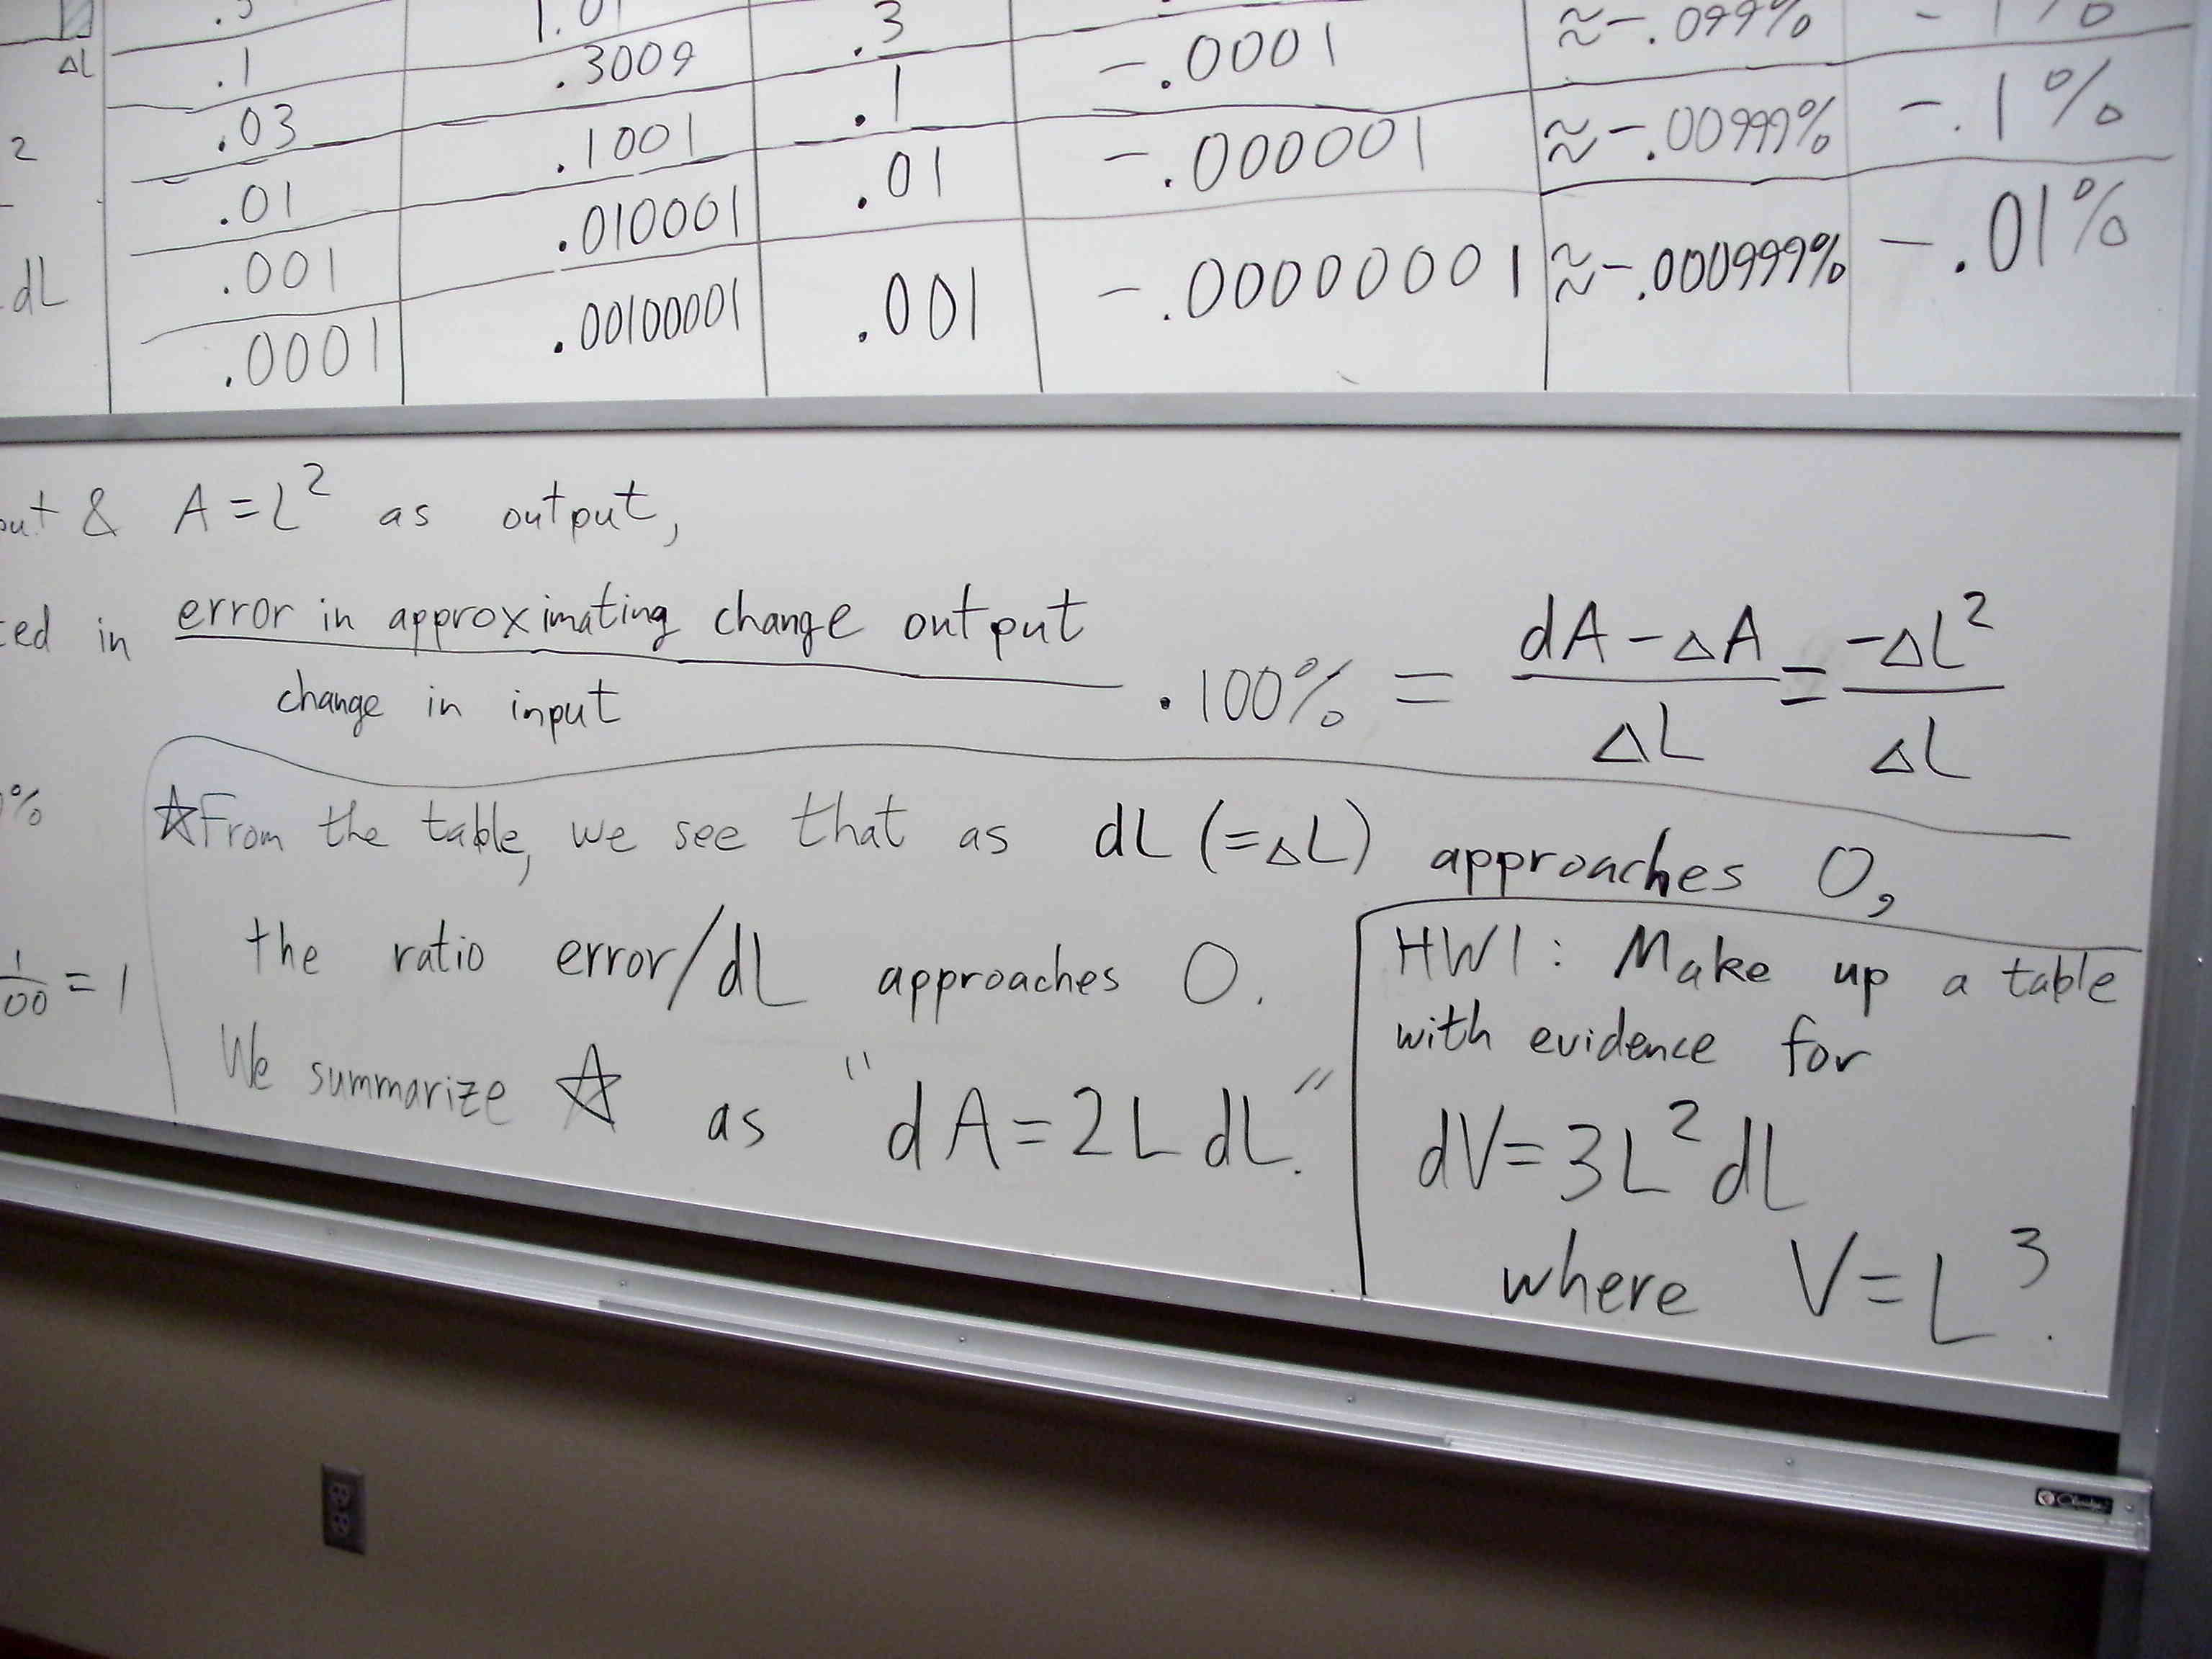 .3 1.01 .3 ≈-.099% -1%
ΔL .1 .3009 .1 -.0001 ≈-.00999% -.1%
2 .03 .1001 .01 -.000001 ≈-.000999% -.01%
.01 .010001 .001 -.00000001
dL .001 .00100001
.0001
& A=L² as output,
in error in approximating change output
change in input
.100% = dA-ΔA = -ΔL²
ΔL ΔL
%
☆From the table, we see that as dL (=ΔL) approaches 0,
the ratio error/dL approaches 0.
= 1
We summarize ☆ as "dA=2L dL."
HW1: Make up a table
with evidence for
dV=3L²dL
where V=L³.